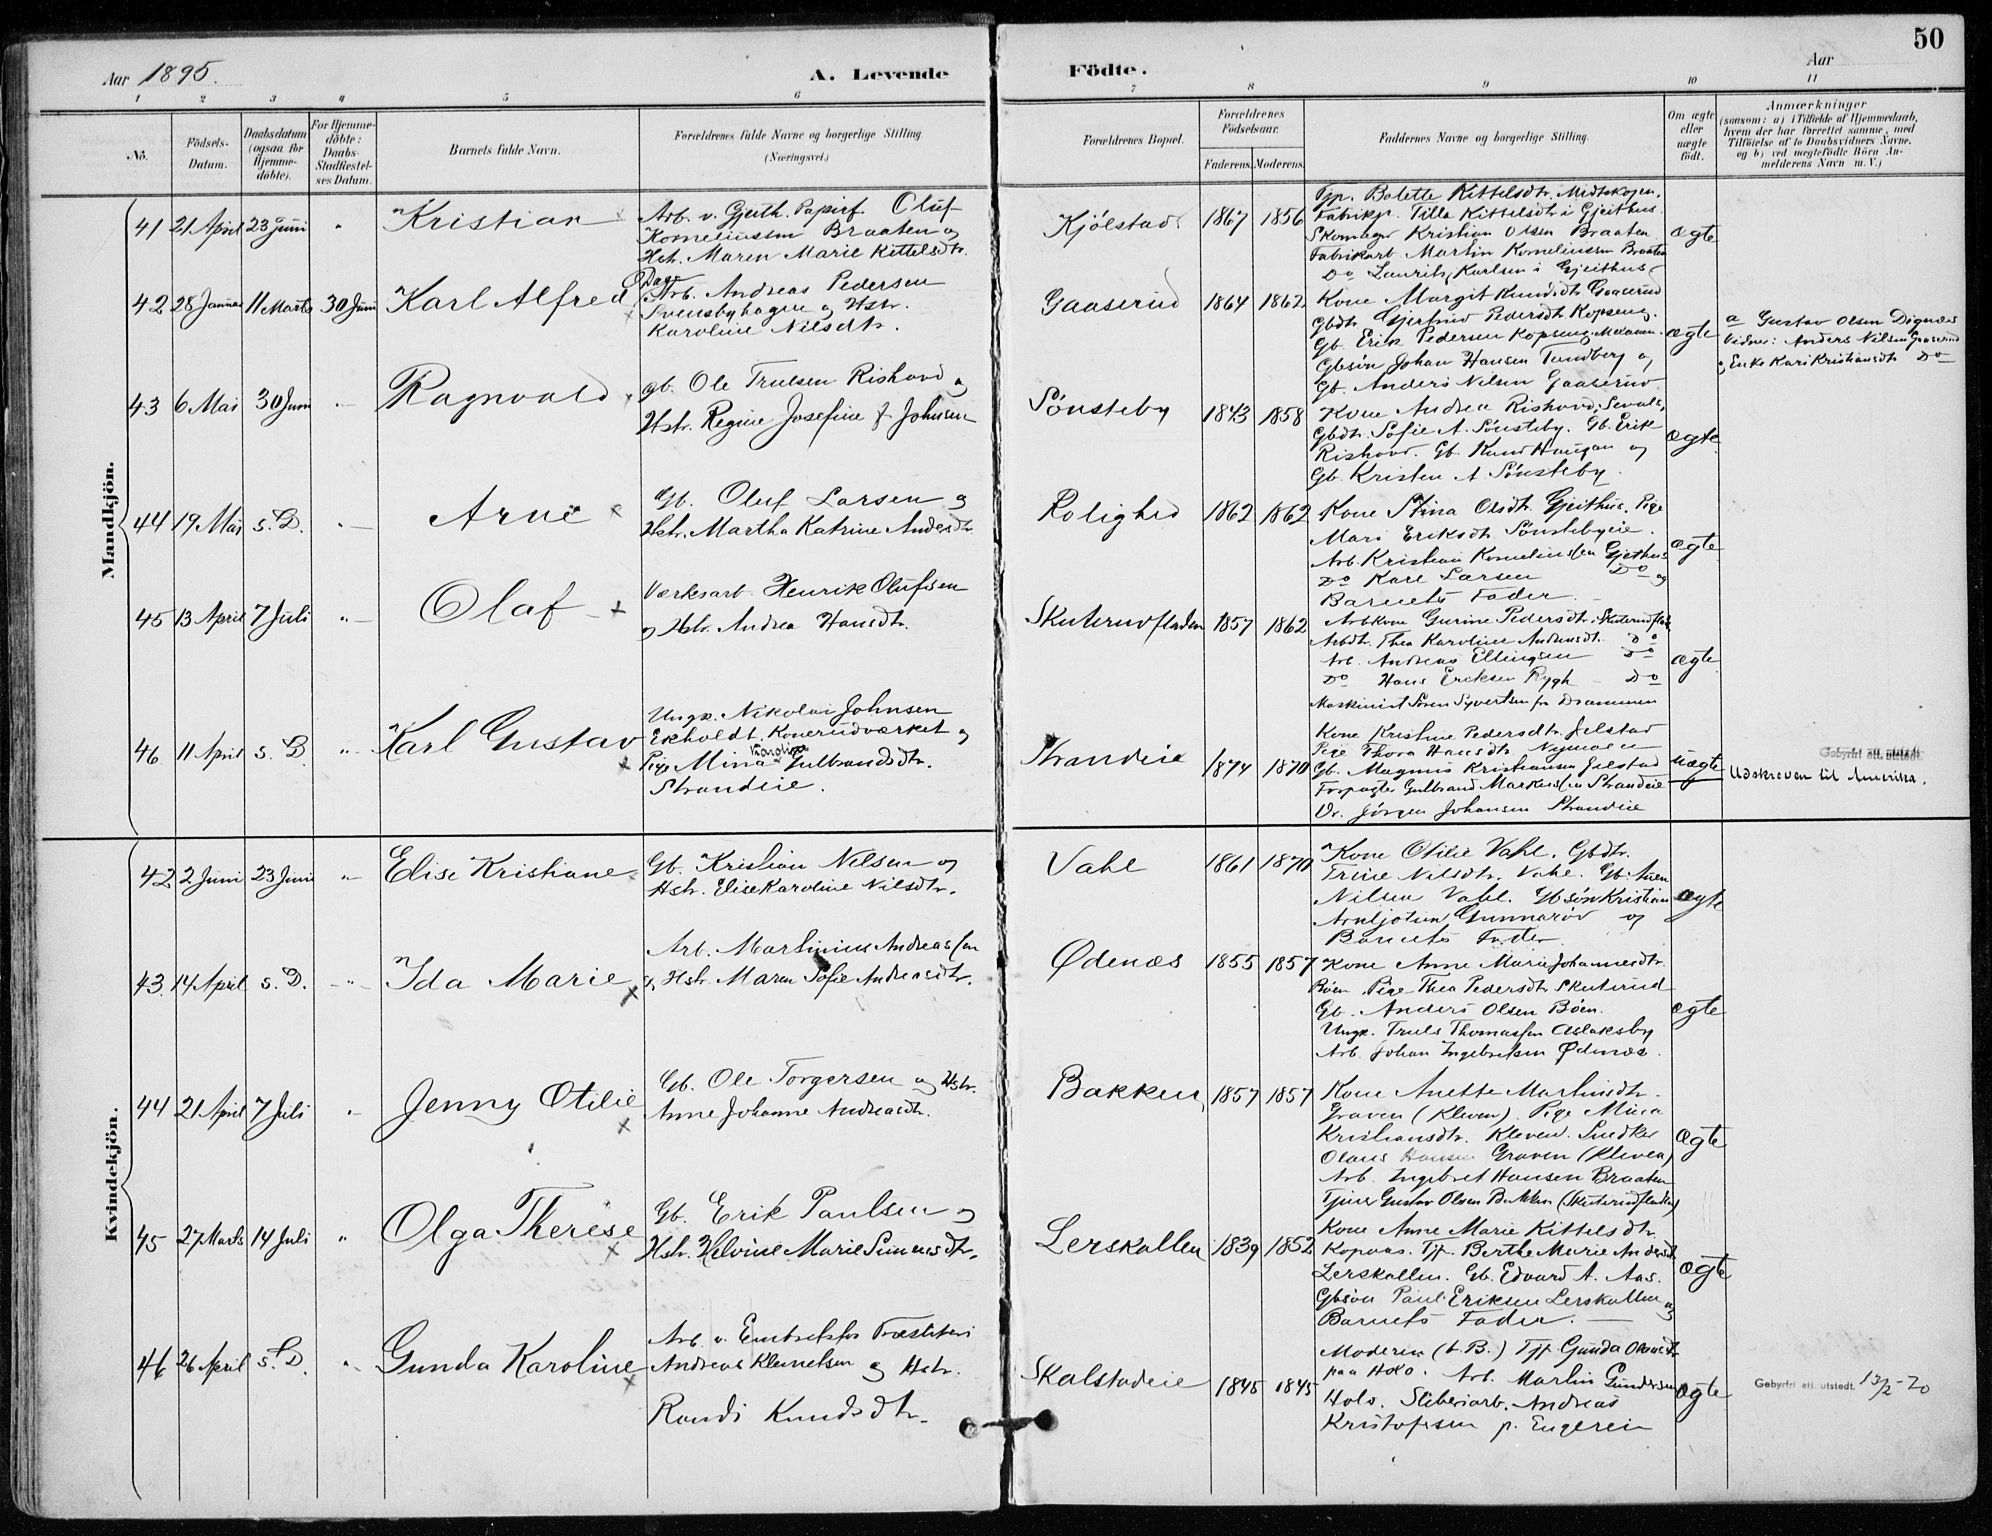 50
Aar 1895.
A. Levende
Födte.
Aar
1 2 3 4 5 6 7 8 9 10 11
No.
Födsels-
Datum.
Daabsdatum
(ogsaa for
Hjemme-
döbte).
For Hjemme-
döbte:
Daabs-
Stadfæstel-
ses Datum.
Barnets fulde Navn.
Forældrenes fulde Navne og borgerlige Stilling
(Næringsvei.)
Forældrenes Bopæl.
Forældrenes
Födselsaar.
Faderens. Moderens.
Faddernes Navne og borgerlige Stilling.
Om ægte
eller
uægte
födt.
Anmærkninger
(saasom: a) i Tilfælde af Hjemmedaab,
hvem der har forrettet samme, med
Tilföielse af to Daabsvidners Navne,
og b) ved uægtefödte Börn An-
melderens Navn m. V.)
Mandkjön.
41 21 April 23 Juni " Kristian
Arb. v. Gjeith. Papirf. Oluf
Korneliussen Braaten og
Hstr. Maren Marie Kittelsdtr.
Kjølstad 1867 1856
Tjp. Bolette Kittelsdtr. Midtskogen.
Fabrikp. Tilla Kittelsdtr i Gjeithus
Skomager Kristian Olsen Braaten
Fabrikarb. Martin Korneliussen Braaten
Do Laurits Karlsen i Gjeithus
ægte
42 28 Januar 11 Marts 30 Juni Karl Alfred
Dag
Arb. Andreas Pedersen
Svensbyhagen og Hstr.
Karoline Nilsdtr.
Gaaserud 1864 1862
Kone Margit Knudsdtr Gaaserud
Gbdtr. Gjertrud Pedersdtr Kopseng.
Gb. Erik Pedersen Kopseng
Gbsøn Johan Hansen Tandberg og
Gb. Anders Nilsen Gaaserud
ægte
a Gustav Olsen Dignæs
Vidner: Anders Nilsen Gaaserud
og Enke Kari Kristiansdtr Do
43 6 Mai 30 Juni Ragnvald
gb. Ole Trulsen Rishovd og
Hstr. Regine Josefine f. Johnsen
Sønsteby 1843 1858
Kone Andrea Rishovd,
Gbdtr. Sofie A. Sønsteby. Gb. Erik
Rishovd. Gb. Knud Haugan og
Gb Kristen A Sønsteby.
ægte
44 19 Mai s. D. Arne
Gb. Oluf Larsen og
Hstr. Martha Katrine Andersdtr
Rolighed 1862 1862
Kone Stina Olsdtr Gjeithus. Pige
Mari Eriksdtr Sønstebyeie.
Arb. Kristian Korneliussen Gjeithus
Do Karl Larsen Do og
Barnets Fader.
ægte
45 13 April 7 Juli " Olaf
Værksarb. Henrik Olufsen
og Hstr. Andrea Hansdtr.
Skuterudfladen 1857 1862
Arbkone Gurine Pedersdtr. Skuterudflad.
Arbdtr. Thea Karoline Andersdtr. Do
Arb. Andreas Ellingsen Do
Do Hans Eriksen Rygh Do
Maskinist Søren Syvertsen fra Drammen
ægte
46 11 April s. D. " Karl Gustav
Ungk. Nikolai Johnsen
Ekholdt, Konerudværket og
Pige Mina Karoline Gulbrandsdtr.
Strandeie.
Strandeie 1874 1870
Kone Kristine Pedersdtr. Jelstad
Pige Thora Hansdtr Nymoen
Gb. Magnus Kristiansen Jelstad
Forpagter Gulbrand Markussen Strandeie
Do. Jørgen Johansen Strandeie
uægte
Gebyrfri att. utstedt.
Udskreven til Amerika.
Kvindekjön.
42 2 Juni 23 Juni " Elise Kristiane
Gb. Kristian Nilsen og
Hstr. Elise Karoline Nilsdtr.
Vahl 1861 1870
Kone Otilie Vahl. Gbdtr.
Trine Nilsdtr. Vahl. Gb.
Nilsen Vahl. Gbsøn Kristian
og
Barnets Fader
ægte
43. 14 April s. D. " Ida Marie
Arb. Martinius Andreassen
og Hstr. Maren Sofie Andreasdtr.
Ødenæs 1855 1857
Kone Anne Marie Johannesdtr.
Bøen. Pige Thea Pedersdtr Skuterud
Gb. Anders Olsen Bøen.
Ungk. Truls Thomassen Aslaksby
Arb. Johan Ingebretsen Ødenæs.
ægte
44 21 April 7 Juli " Jenny Otilie
Gb. Ole Torgersen og Hstr.
Anne Johanne Andreasdtr.
Bakken 1857 1857
Kone Anette Martinsdtr.
Graven (Kleven). Pige Mina
Kristiansdtr. Kleven. Snedker
Olaus Hansen Graven (Kleven)
Arb. Ingebret Hansen Braaten
Tjener Gustav Olsen Bakken (Skuterudfladen)
ægte
45 27 Marts 14 Juli " Olga Therese
Gb. Erik Paulsen og
Hstr. Helvine Marie Simensdtr.
Lerskallen 1839 1852
Kone Anne Marie Kittelsdtr.
Kopaas. Tjp. Berthe Marie Andersdtr
Lerskallen. Gb. Edvard A. Aas.
Gbsøn Paul Eriksen Lerskallen og
Barnets Fader.
ægte
46 26 April s. D. " Gunda Karoline
Arb. v. Embretsfos Træsliberi
Andreas Klemetsen og Hstr.
Randi Knudsdtr.
Skalstadeie 1845 1845
Moderen (t. B.) Tjp. Gunda
paa Holo. Arb. Martin Gundersen
Holo. Sliberiarb. Andreas
Kristofersen p. Engerein
ægte
Gebyrfri att. utstedt. 13/2-70